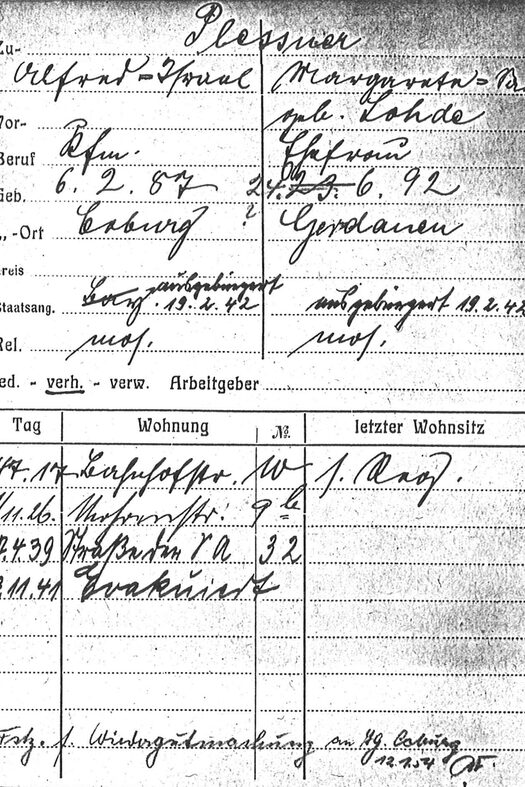 Plessner
Zu-
Alfred = Israel Margarete = Sa
geb. Lohde
Vor-
Beruf Kfm. Ehefrau
Geb. 6. 2. 87 24. 6. 92
„ -Ort Coburg ? Gerdauen
Kreis
Staatsang. Bay. ausgebürgert 19.2.42 ausgebürgert 19.2.42
Rel. mos. mos.
led. - verh. - verw. Arbeitgeber
Tag Wohnung №. letzter Wohnsitz
7.17 Bahnhofstr. s.
11.26. Mohrenstr. 9 b
.4.39 Straße der SA 32
.11.41 Evakuiert
f. Wiedergutmachung an Coburg
12.1.54